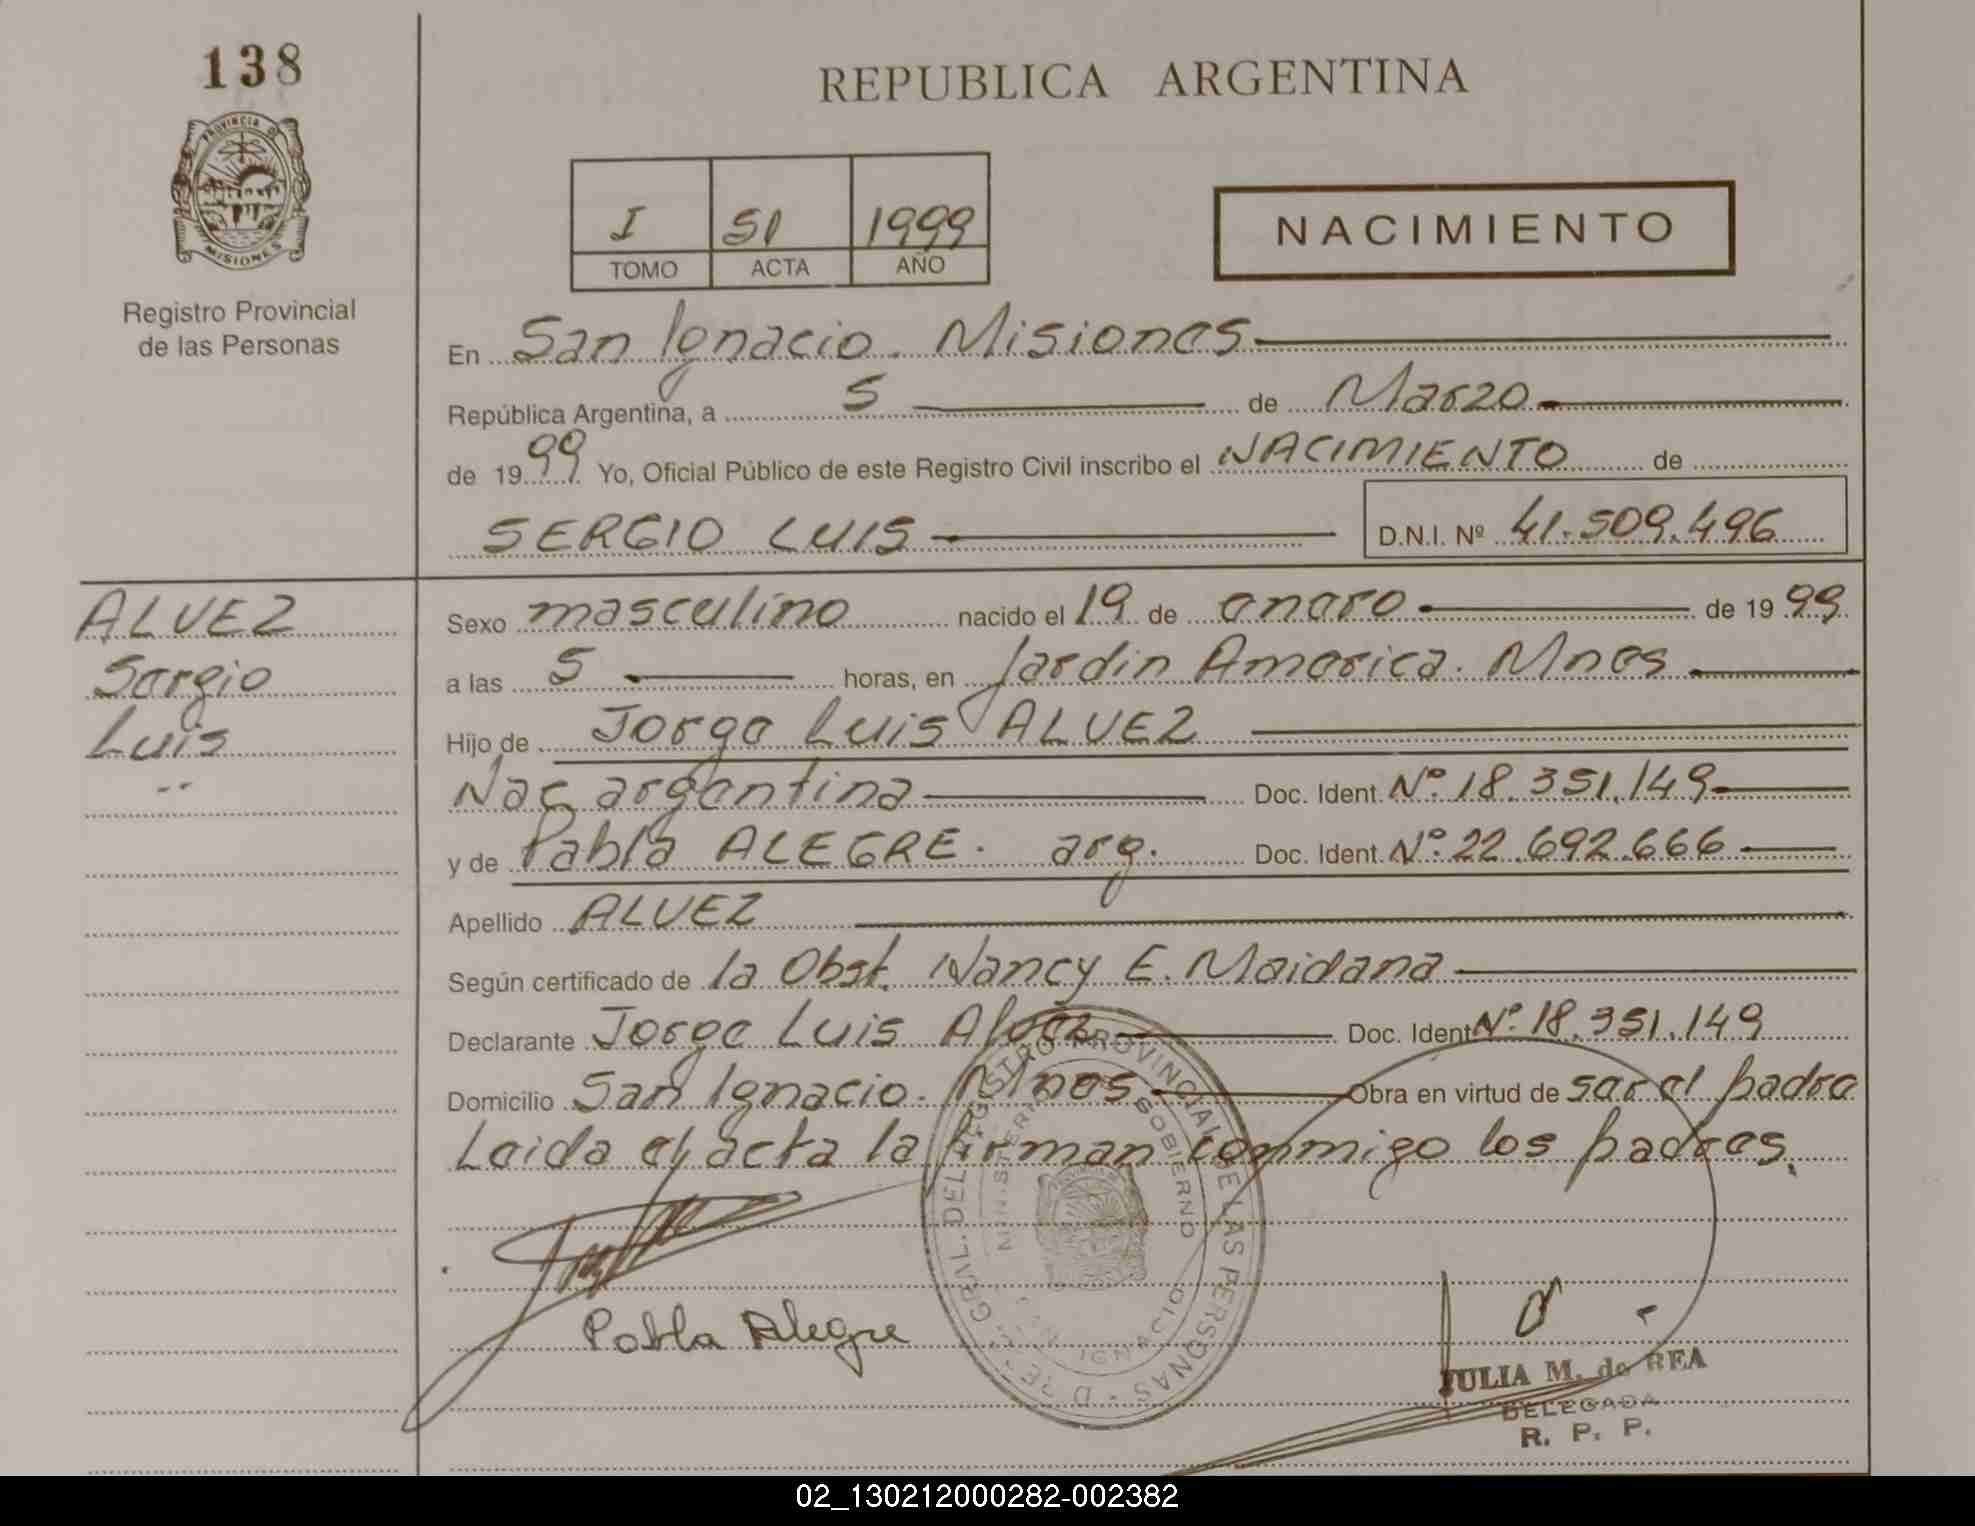 138
PROVINCIA D
MISIONES
Registro Provincial
de las Personas
REPUBLICA ARGENTINA
I 51 1999
TOMO ACTA AÑO
NACIMIENTO
En San Ignacio. Misiones
República Argentina, a 5 de Marzo
de 1999 Yo, Oficial Público de este Registro Civil inscribo el NACIMIENTO de
SERGIO LUIS D.N.I. Nº 41.509.496
ALVEZ
Sergio
Luis
Sexo masculino nacido el 19 de enero de 1999
a las 5 horas, en Jardin America. Mnes
Hijo de Jorge Luis ALVEZ
Nac argentina Doc. Ident. Nº 18.351.149
y de Pabla ALEGRE. arg. Doc. Ident. Nº 22.692.666
Apellido ALVEZ
Según certificado de la Obst. Nancy E. Maidana
Declarante Jorge Luis Alvez Doc. Ident Nº 18.351.149
Domicilio San Ignacio. Mnes Obra en virtud de ser el padre
Leida el acta la firman conmigo los padres.
Pabla Alegre
GRAL. DEL REGISTRO PROVINCIAL DE LAS PERSONAS
MINISTERIO GOBIERNO
IGNACIO
JULIA M. de REA
DELEGADA
R. P. P.
02_130212000282-002382